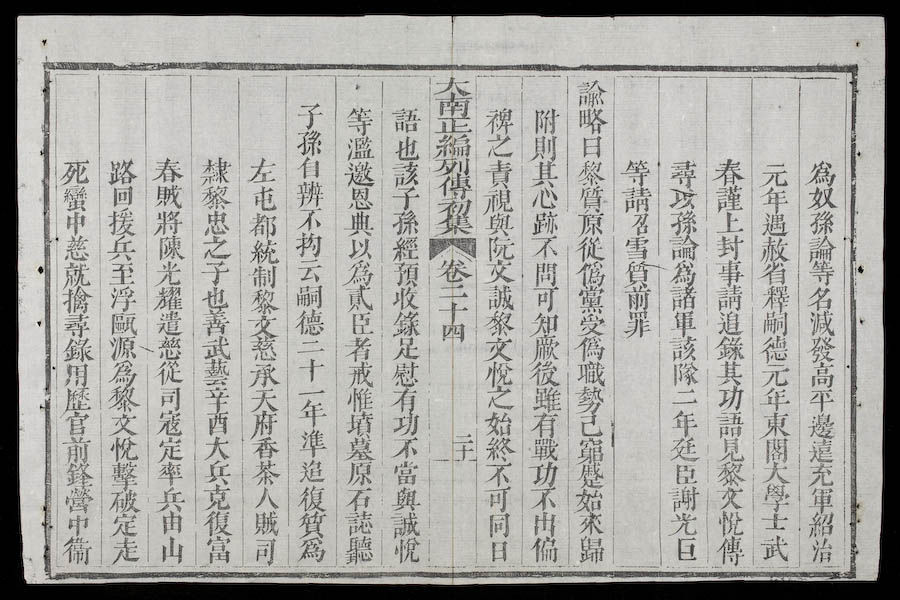 為奴孫論等名減發高平邊遠充軍紹治
元年遇赦省釋嗣德元年東閣大學士武
春謹上封事請追錄其功語見黎文悅傳
尋攺孫論為諸軍該隊二年廷臣謝光巨
等請召雪質前罪
諭略曰黎質原從偽黨受偽職勢已窮蹙始來歸
附則其心跡不問可知厥後雖有戰功不出偏
裨之責視與阮文誠黎文悅之始終不可同日
大南正編列傳初集 卷二十四 二十
語也該子孫經預收錄足慰有功不當與誠悅
等濫邀恩典以為貳臣者戒惟墳墓原石誌聽
子孫自辨不拘云嗣德二十一年準追復質為
左屯都統制黎文慈承天府香茶人賊司
隸黎忠之子也善武藝辛酉大兵克復富
春賊將陳光耀遣慈從司寇定率兵由山
路回援兵至浮甌源為黎文悅擊破定走
死蠻中慈就擒尋錄用歷官前鋒營中衞